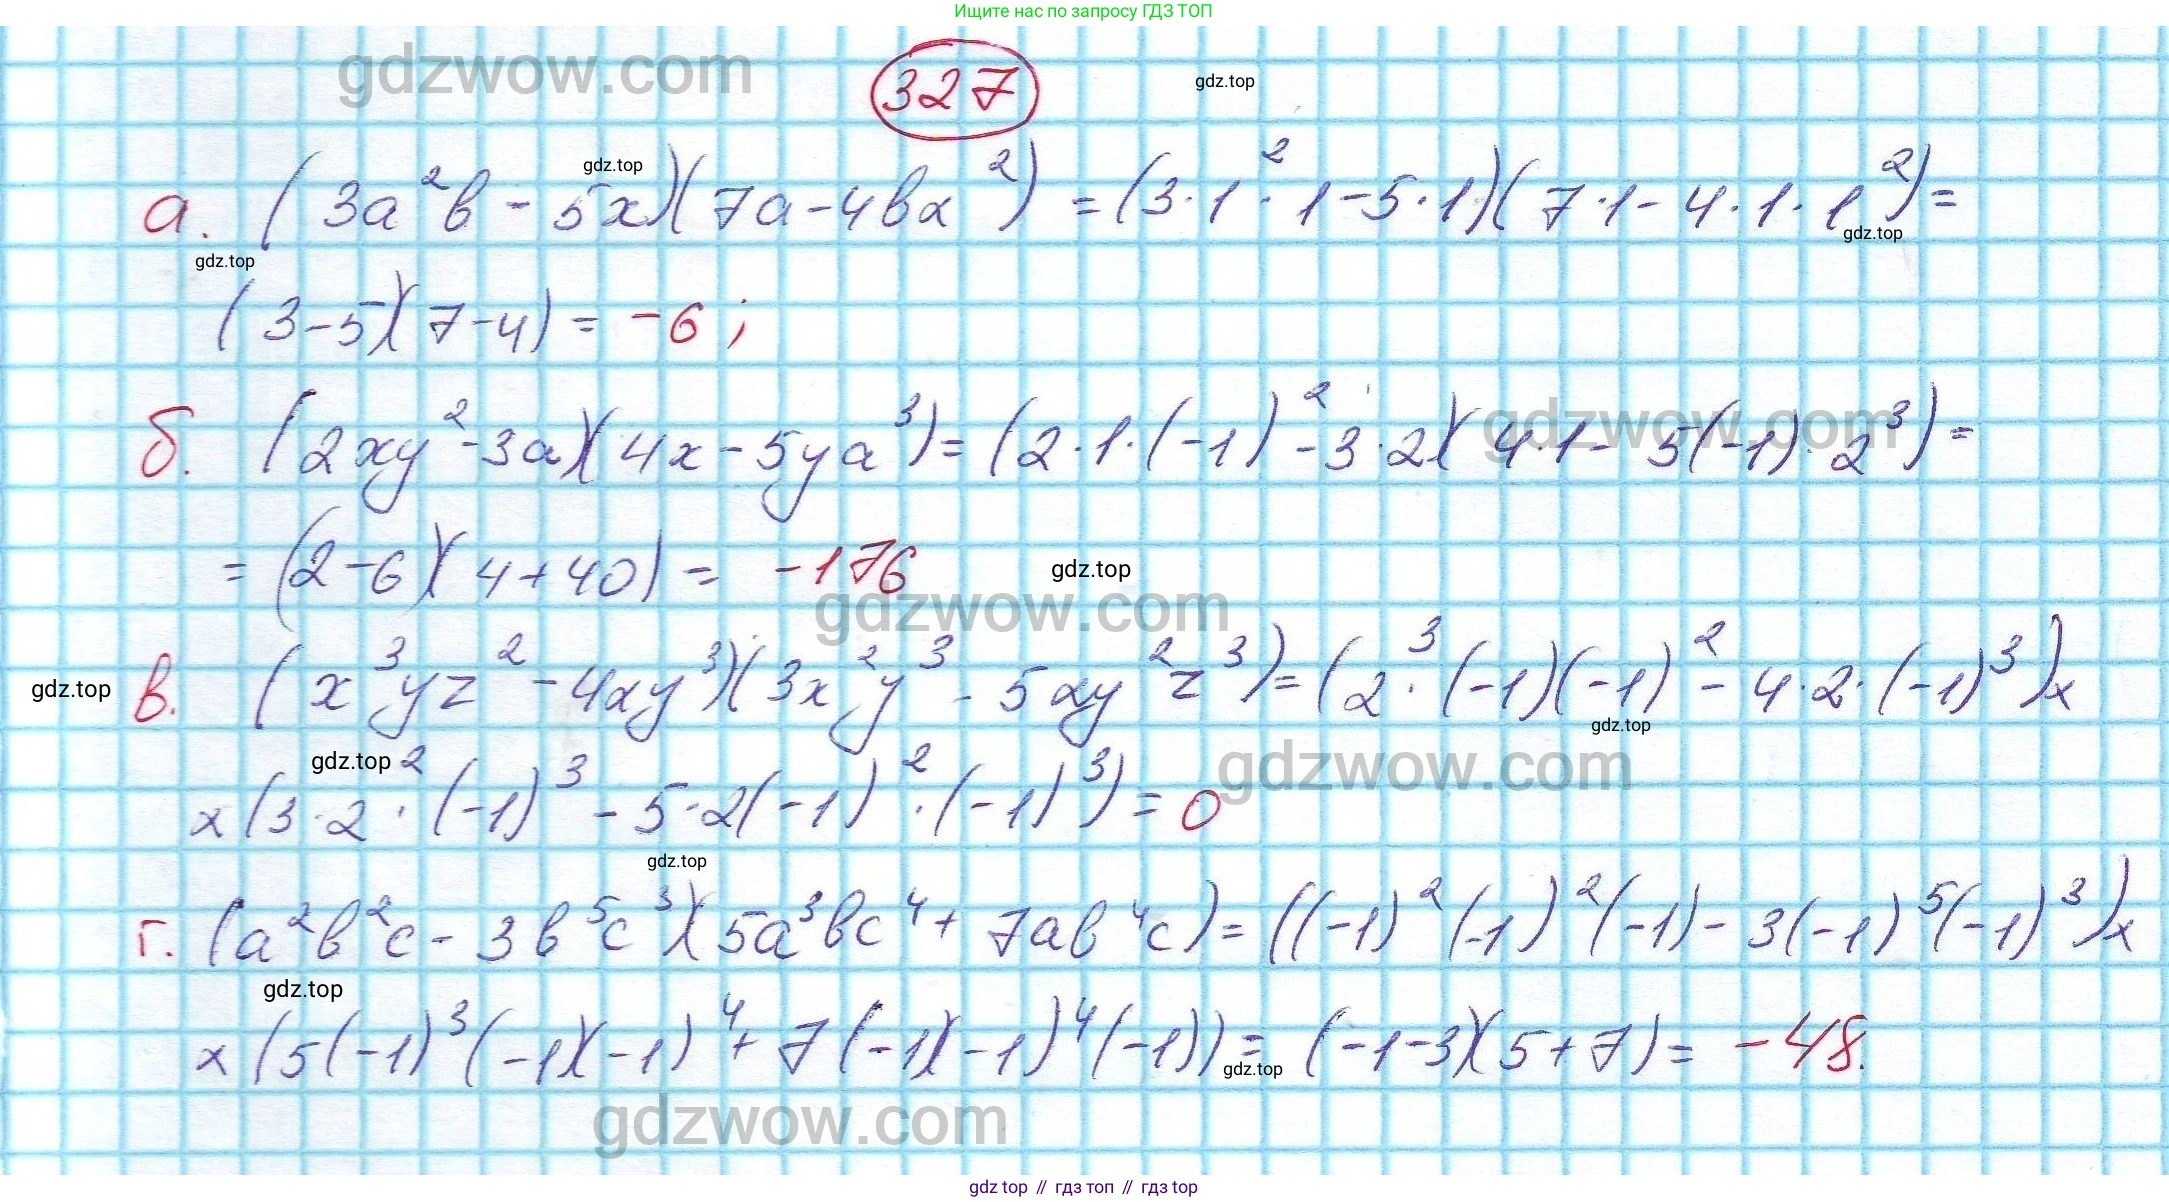 Ищите нас по запросу ГДЗ ТОП
gdzwow.com
327
gdz.top
gdz.top
а. (3a²b - 5x)(7a - 4bx²) = (3·1²·1 - 5·1)(7·1 - 4·1·1²) =
gdz.top
gdz.top
(3-5)(7-4) = -6;
gdzwow.com
б. (2xy² - 3a)(4x - 5ya³) = (2·1·(-1)² - 3·2)(4·1 - 5(-1)·2³) =
= (2-6)(4+40) = -176
gdz.top
gdzwow.com
gdz.top
в. (x³yz² - 4xy³)(3x²y³ - 5xy²z³) = (2³·(-1)(-1)² - 4·2·(-1)³)x
gdz.top
gdz.top
gdzwow.com
x(3·2²·(-1)³ - 5·2(-1)²·(-1)³) = 0
gdz.top
г. (a²b²c - 3b⁵c³)(5a³bc⁴ + 7ab⁴c) = ((-1)²(-1)²(-1) - 3(-1)⁵(-1)³)x
gdz.top
x(5(-1)³(-1)(-1)⁴ + 7(-1)(-1)⁴(-1)) = (-1-3)(5+7) = -48.
gdz.top
gdzwow.com
gdz top // гдз топ // гдз top